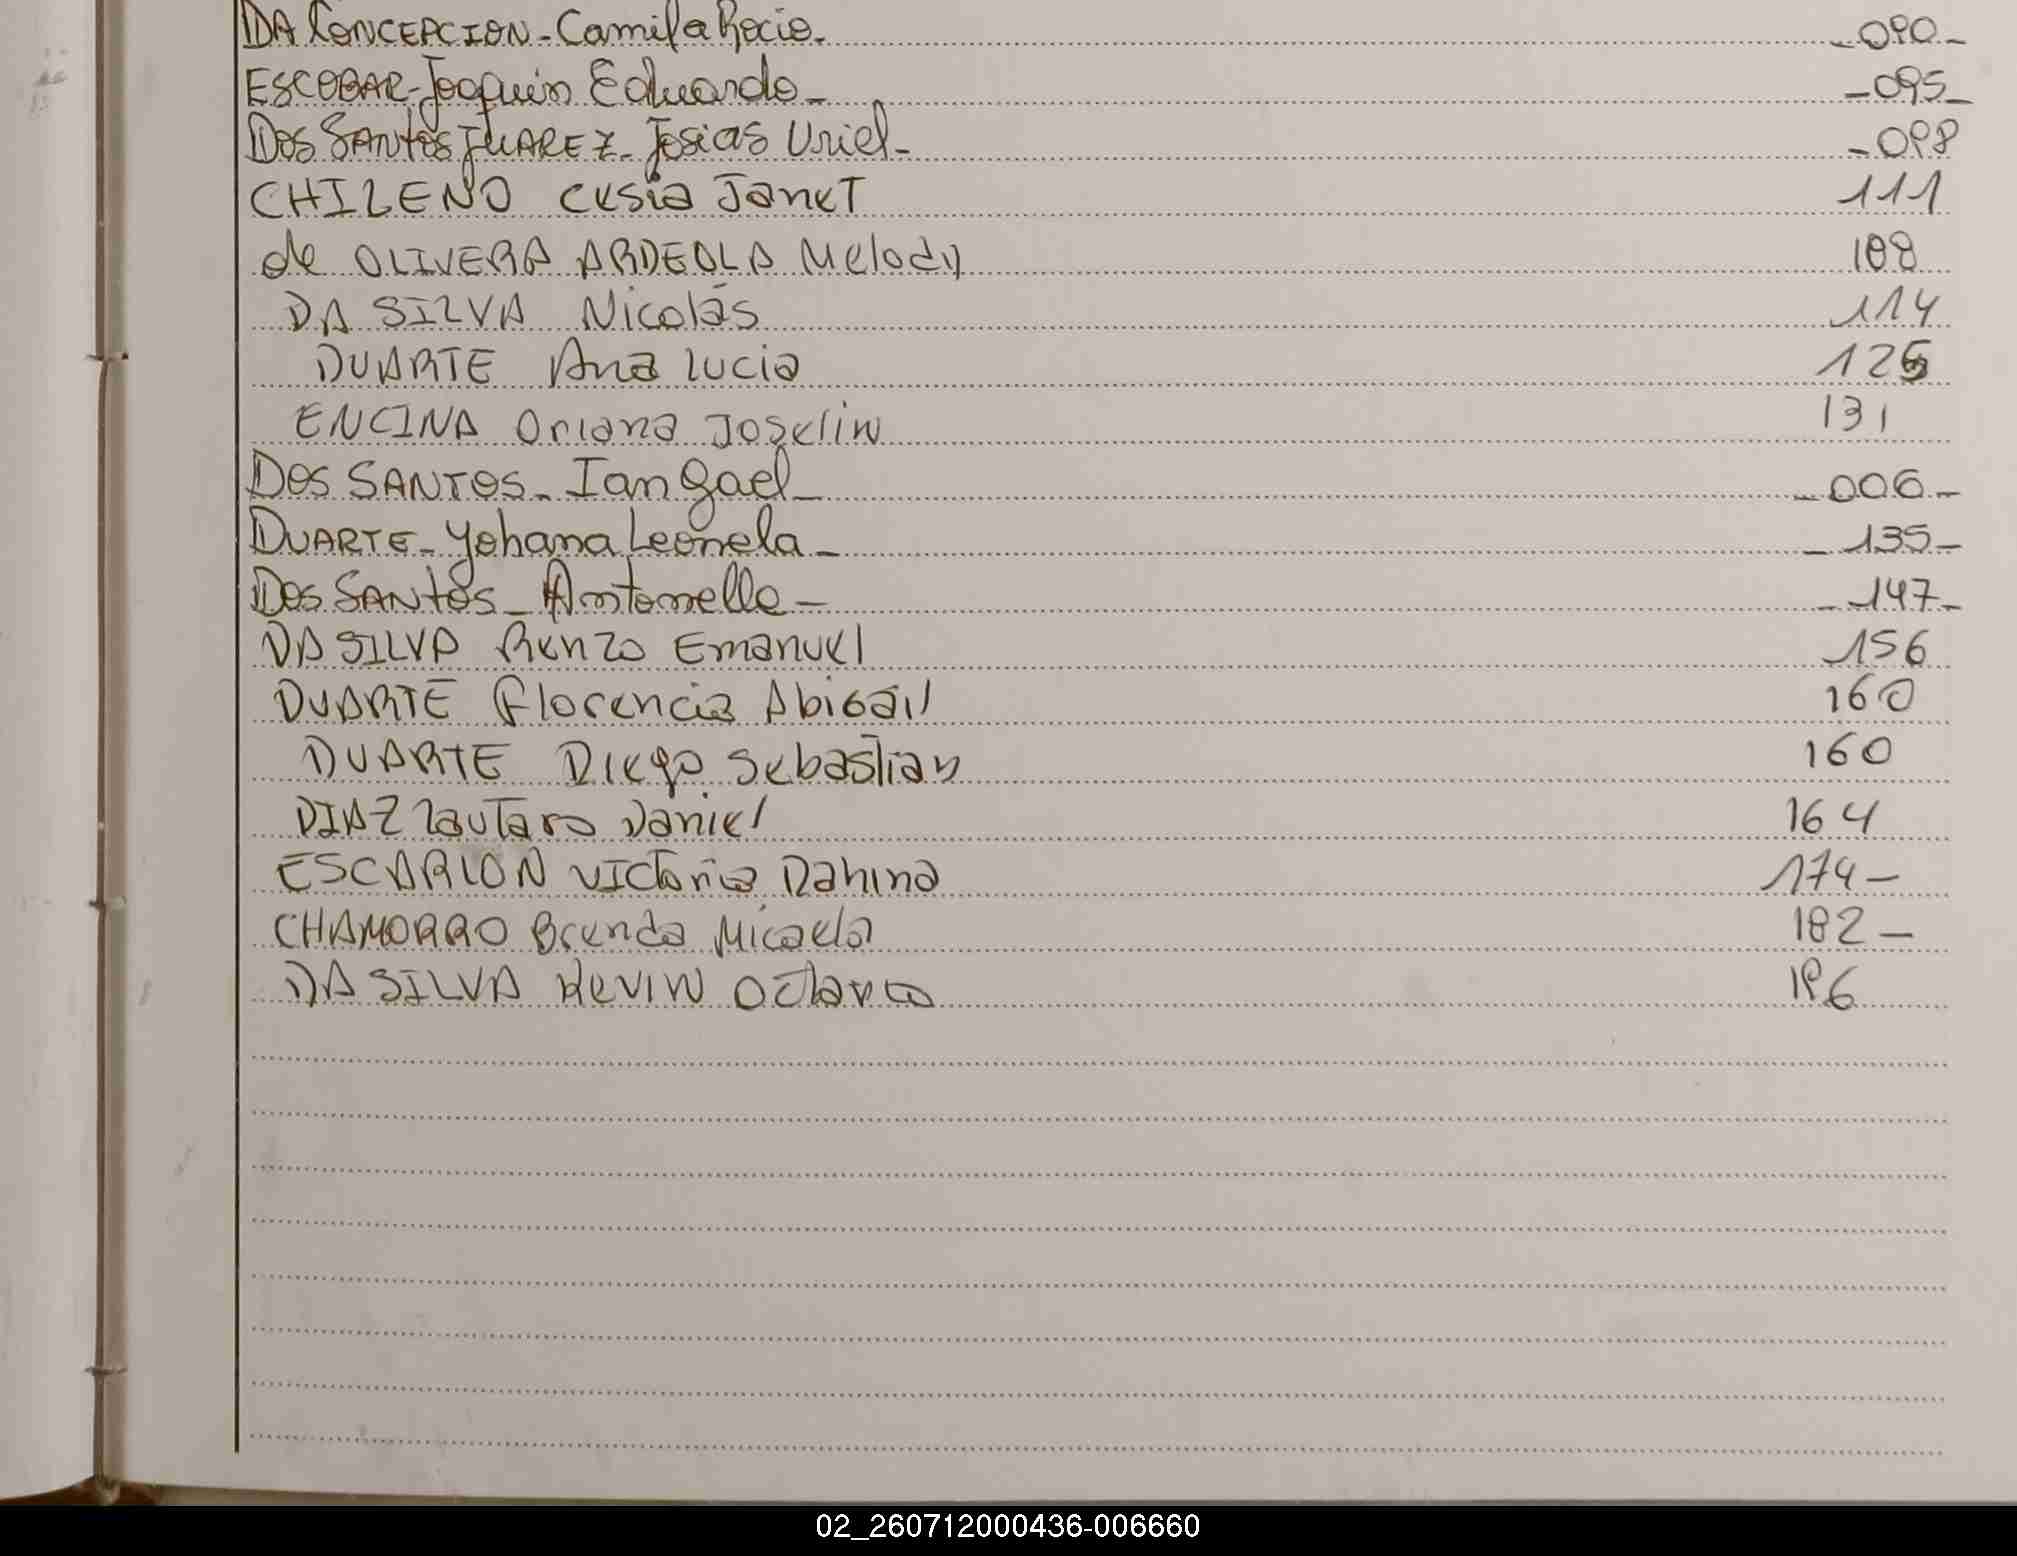 DA CONCEPCION - Camila Rocio. -090-
ESCOBAR - Joaquin Eduardo - -095-
Dos SANTOS JUAREZ - Josias Uriel - -098
CHILENO Cesia Janet 111
de OLIVERA ARDEOLA Melody 108
DA SILVA Nicolás 114
DUARTE Ana lucia 125
ENCINA Oriana Joselin 131
Dos SANTOS - Ian Gael - -006-
DUARTE - Yohana Leonela - -135-
Dos SANTOS - Antonella - -147-
DA SILVA Renzo Emanuel 156
DUARTE Florencia Abigail 160
DUARTE Diego Sebastian 160
DIAZ Lautaro Daniel 164
ESCARLON Victoria Dahina 174 -
CHAMORRO Brenda Micaela 182 -
DA SILVA Kevin Octavio 196
02_260712000436-006660